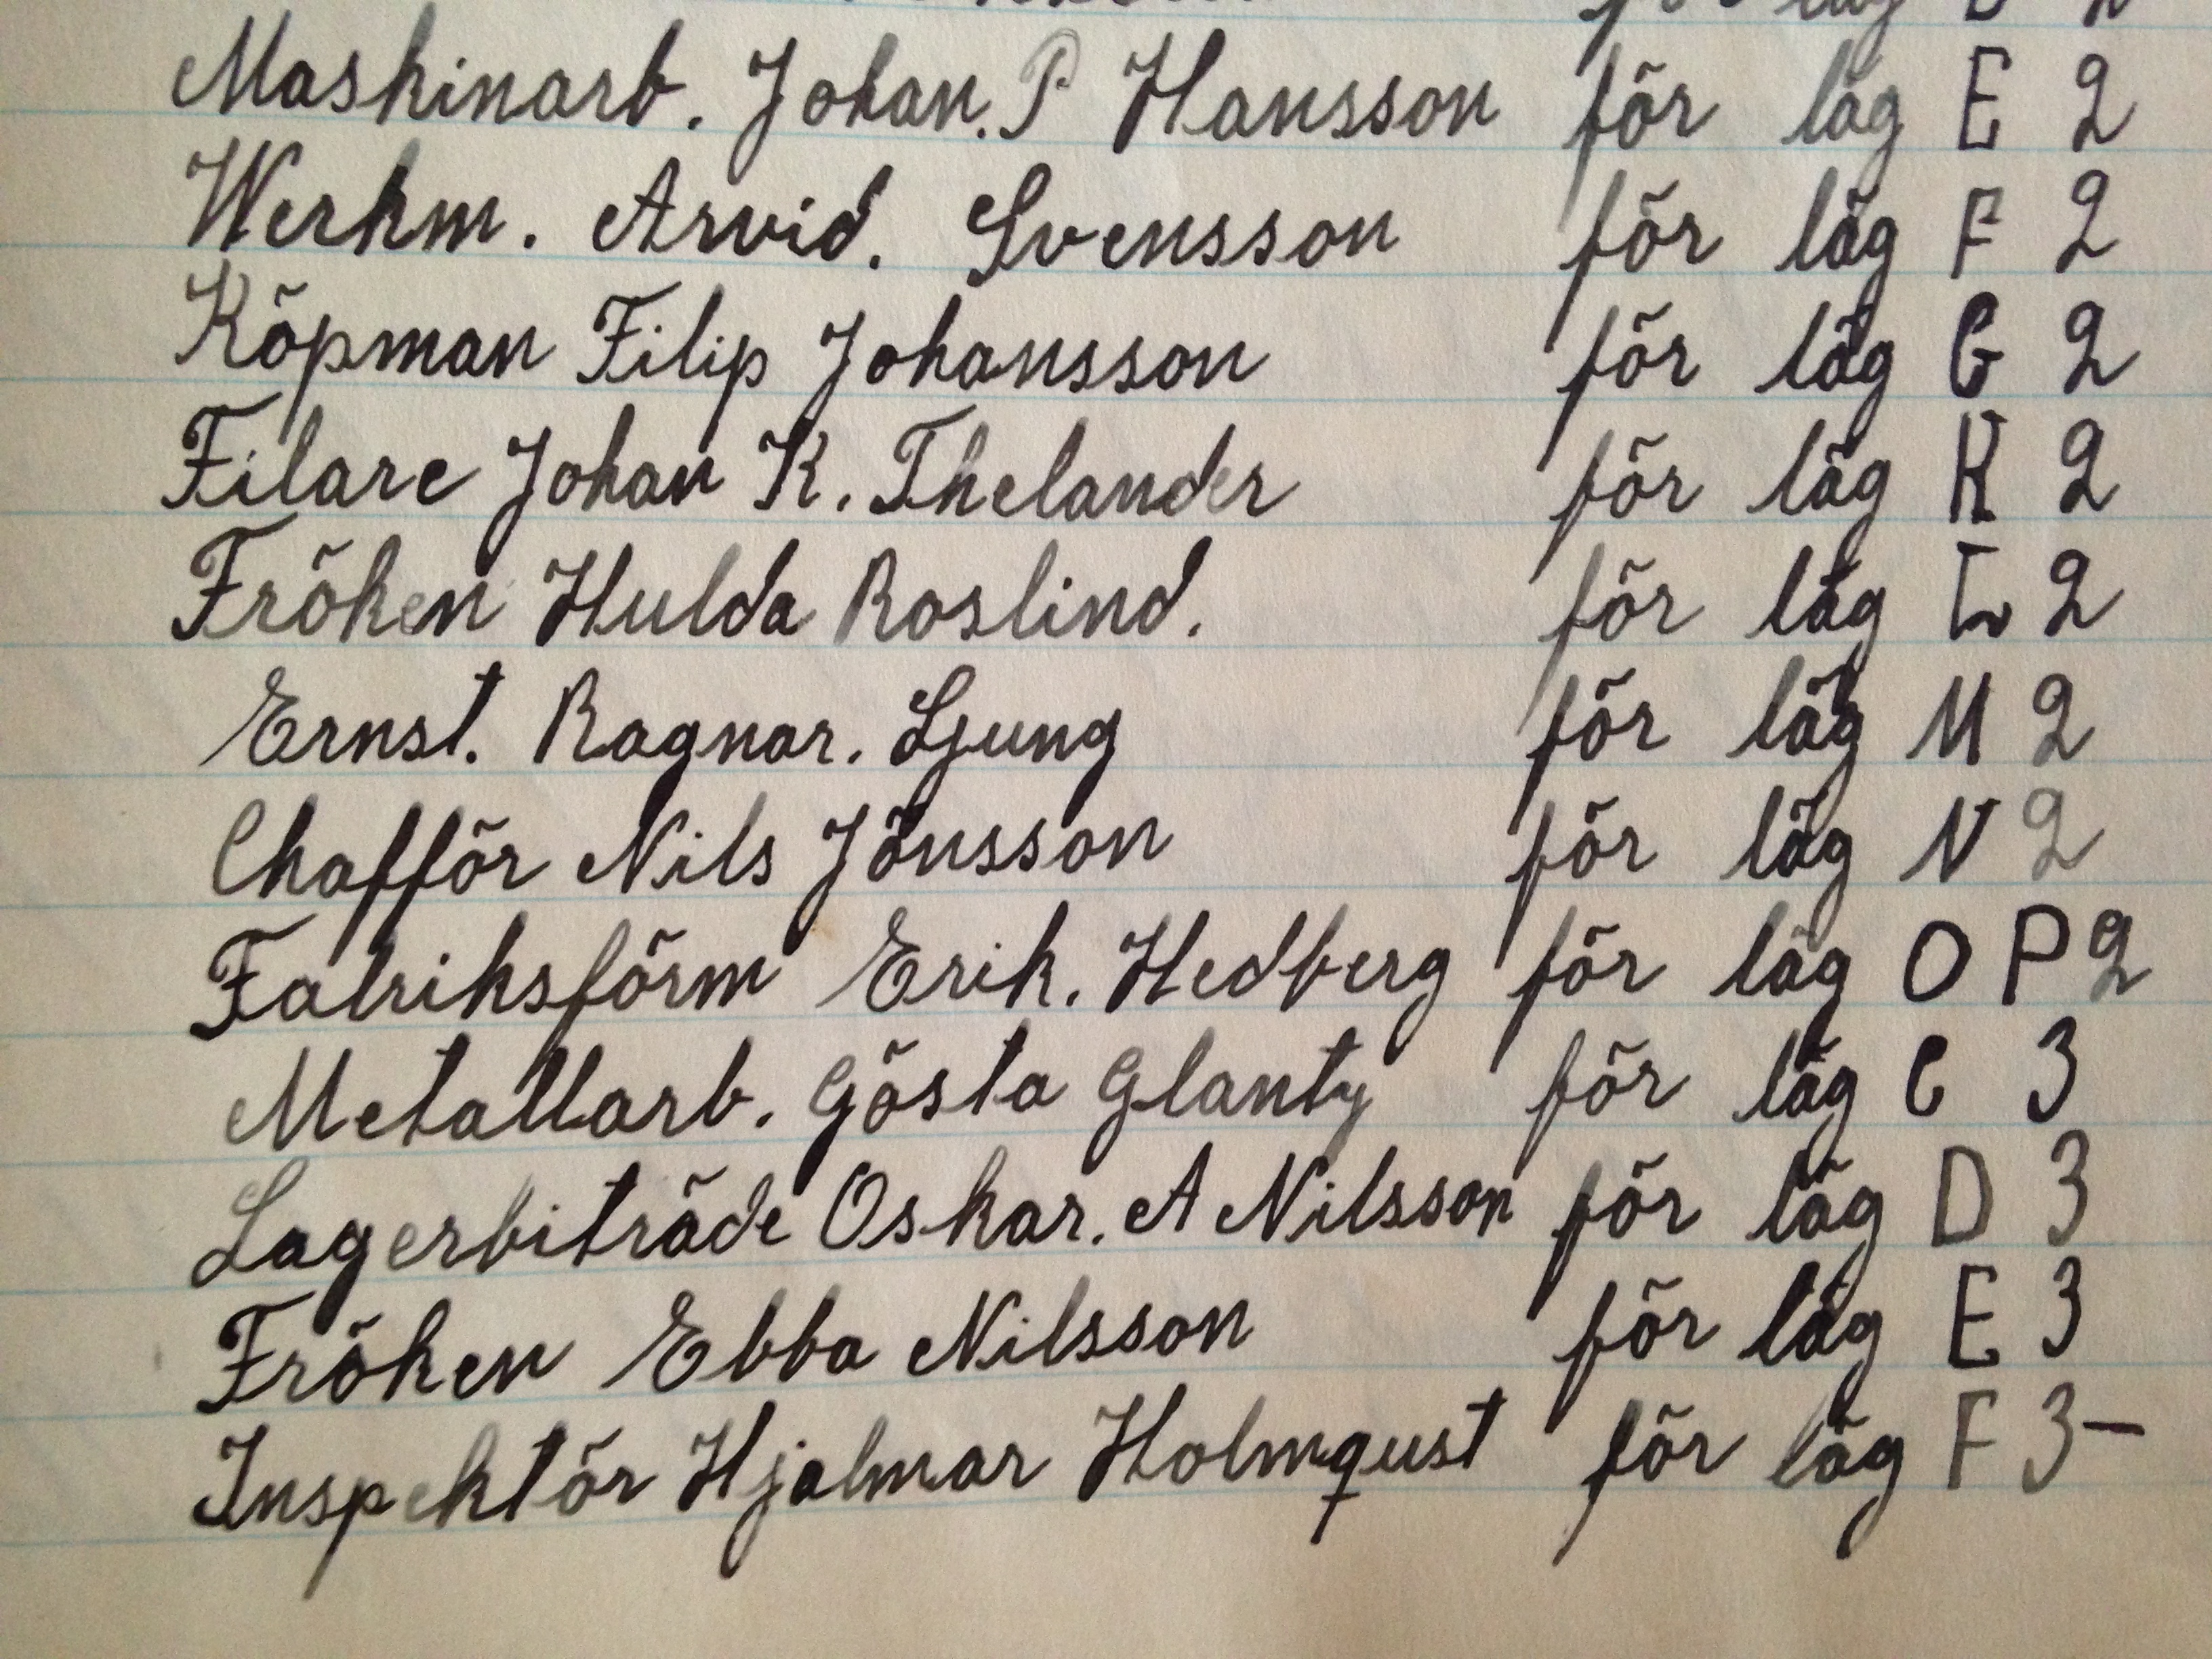 för läg
Maskinarb. Johan. P Hansson för läg E 2
Werkm. Arvid. Svensson för läg F 2
Köpman Filip Johansson för läg G 2
Filare Johan K. Thelander för läg K 2
Fröken Hulda Roslind. för läg L 2
Ernst. Ragnar. Ljung för läg M 2
Chafför Nils Jönsson för läg N 2
Fabriksförm Erik. Hedberg för läg O P 2
Metallarb. Gösta Glanty för läg C 3
Lagerbiträde Oskar. A Nilsson för läg D 3
Fröken Ebba Nilsson för läg E 3
Inspektör Hjalmar Holmqust för läg F 3-